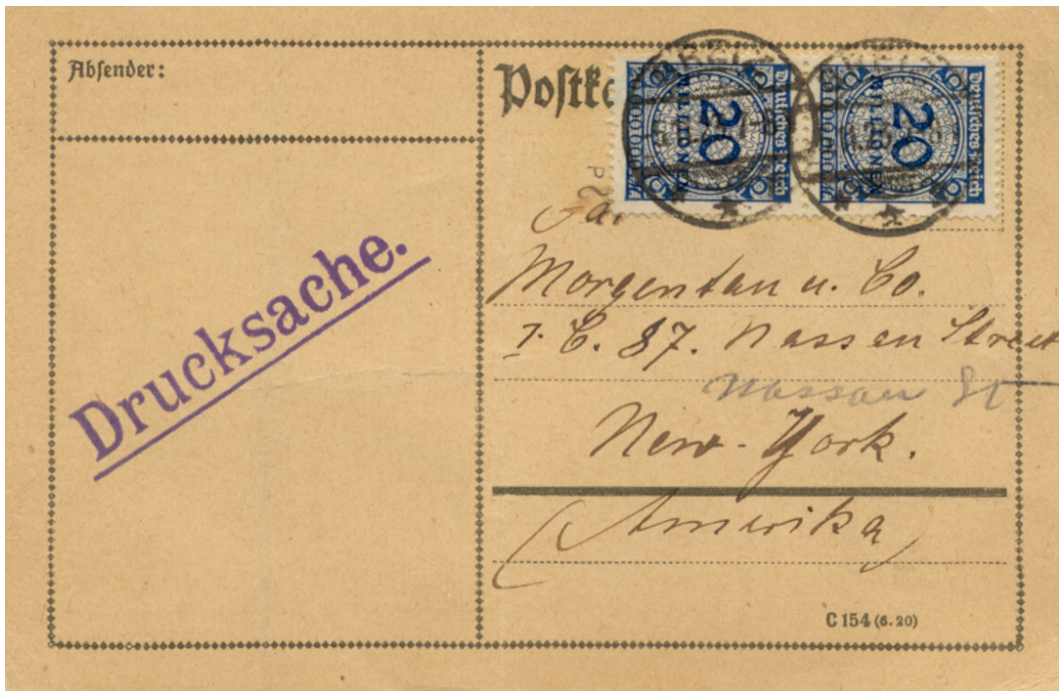 Absender:
Postka
Deutsches Reich
20
MILLIONEN
Deutsches Reich
20
MILLIONEN
Drucksache.
Morgentau u. Co.
87. Nassen Street
Nassau St
New-York.
(Amerika)
C 154 (6. 20)